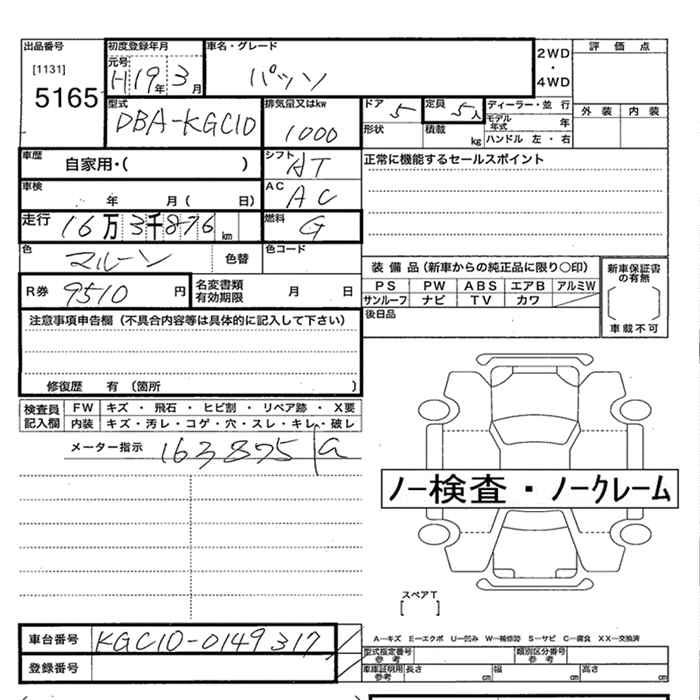 出品番号
[1131]
5165
初度登録年月
元号
H19年3月
車名・グレード
パッソ
2WD
・
4WD
評価点
外装 内装
型式
DBA-KGC10
排気量又はkw
1000
ドア 5
定員 5人
ディーラー・並行
形状
積載 kg
モデル年式 年
ハンドル 左・右
車歴 自家用・( )
シフト AT
正常に機能するセールスポイント
車検 年 月( 日)
AC AC
走行 16万3千876km
燃料 G
色 マルーン 色替
色コード
装備品(新車からの純正品に限り○印)
PS PW ABS エアB アルミW
サンルーフ ナビ TV カワ
新車保証書の有無
車載不可
R券 9510円
名変書類有効期限 月 日
後日品
注意事項申告欄(不具合内容等は具体的に記入して下さい)
修復歴 有(箇所 )
検査員記入欄
FW キズ・飛石・ヒビ割・リペア跡・X要
内装 キズ・汚レ・コゲ・穴・スレ・キレ・破レ
メーター指示 163875
ノー検査・ノークレーム
スペアT
[ ]
車台番号 KGC10-0149317
登録番号
A−キズ E−エクボ U−凹み W−補修跡 S−サビ C−腐食 XX−交換済
型式指定番号参考
類別区分番号参考
車庫証明用参考 長さ cm 幅 cm 高さ cm